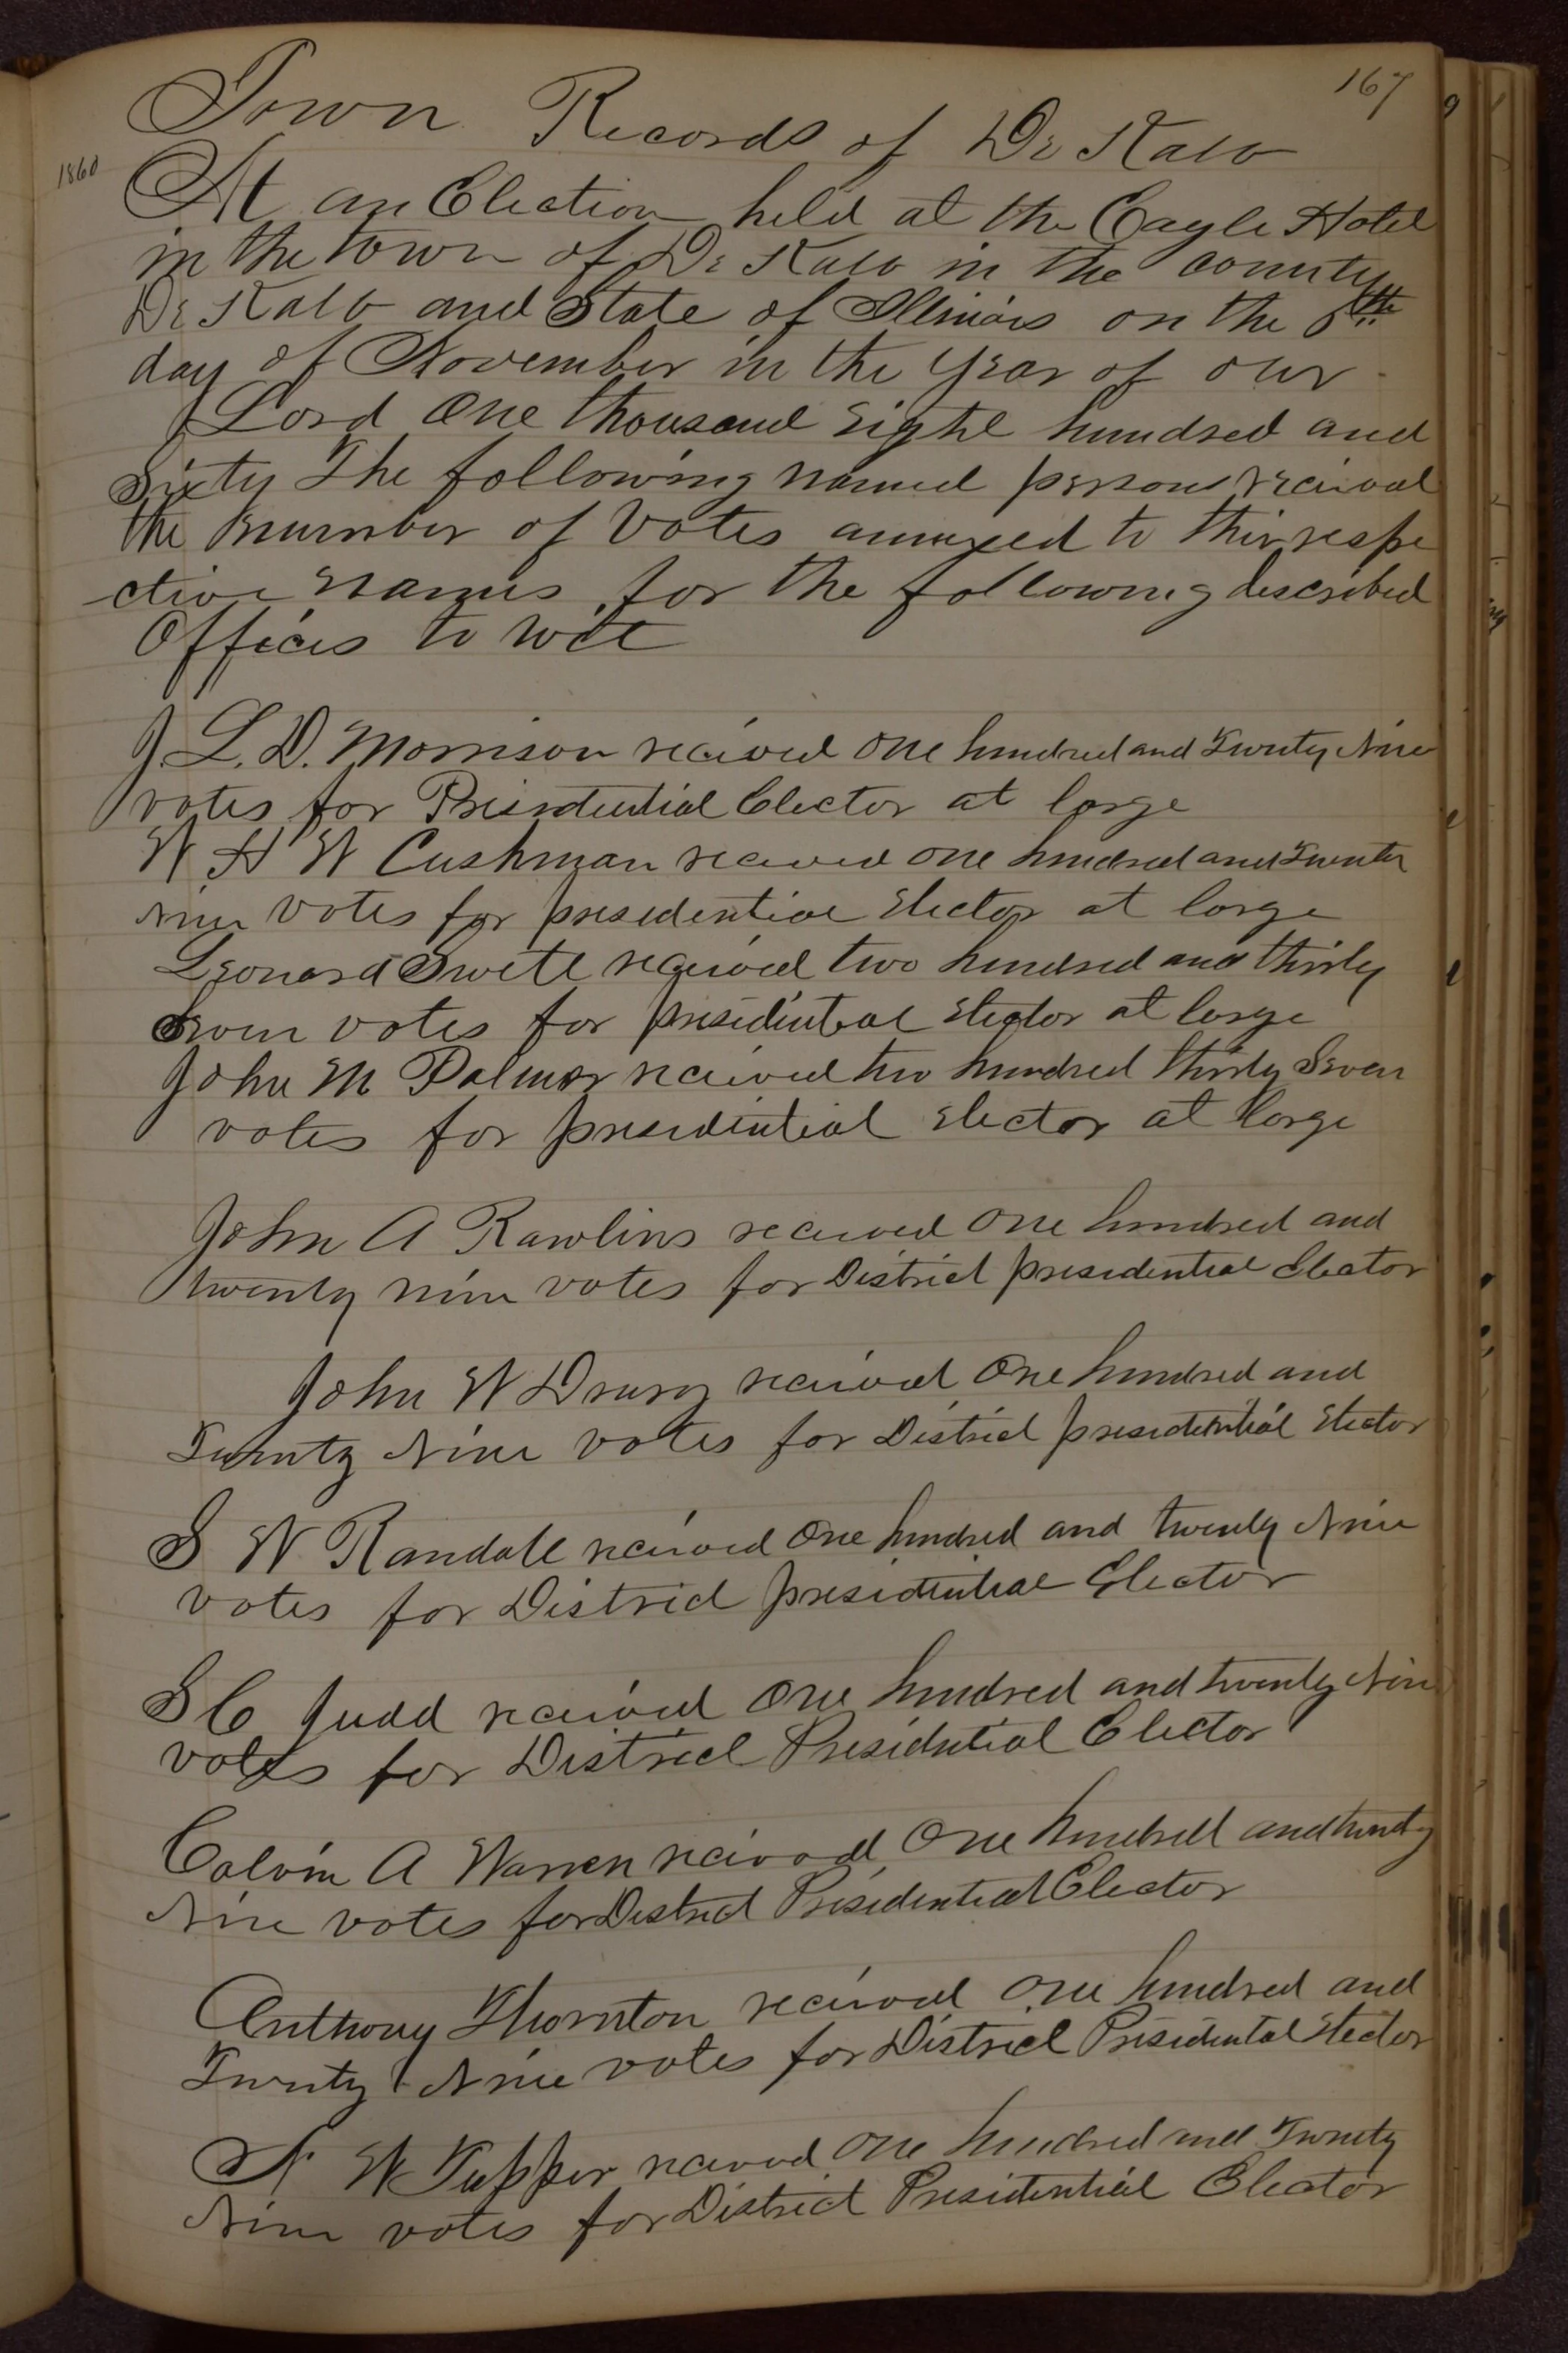 167
Town Records of De Kalb
1860
At an Election held at the Eagle Hotel
in the town of De Kalb in the county
De Kalb and State of Illinois on the 6th
day of November in the year of our
Lord One thousand eight hundred and
Sixty The following named persons received
the number of Votes annexed to their respe
ctive names for the following described
Offices to wit
J. L. D. Morrison received one hundred and Twenty Nine
votes for Presidential Elector at large
W H W Cushman received one hundred and Twenty
Nine votes for presidential elector at large
Leonard Swett received two hundred and thirty
Seven votes for presidential elector at large
John M Palmer received two hundred thirty Seven
votes for presidential elector at large
John A Rawlins received one hundred and
twenty nine votes for District presidential Elector
John W Drury received One hundred and
Twenty Nine votes for District presidential elector
S W Randall received One hundred and twenty Nine
votes for District presidential Elector
S C Judd received One hundred and twenty Nine
votes for District Presidential Elector
Calvin A Warren received One hundred and twenty
Nine votes for District Presidential Elector
Anthony Thornton received One hundred and
Twenty Nine votes for District Presidental elector
N W Tupper received One hundred and Twenty
Nine votes for District Presidential Elector